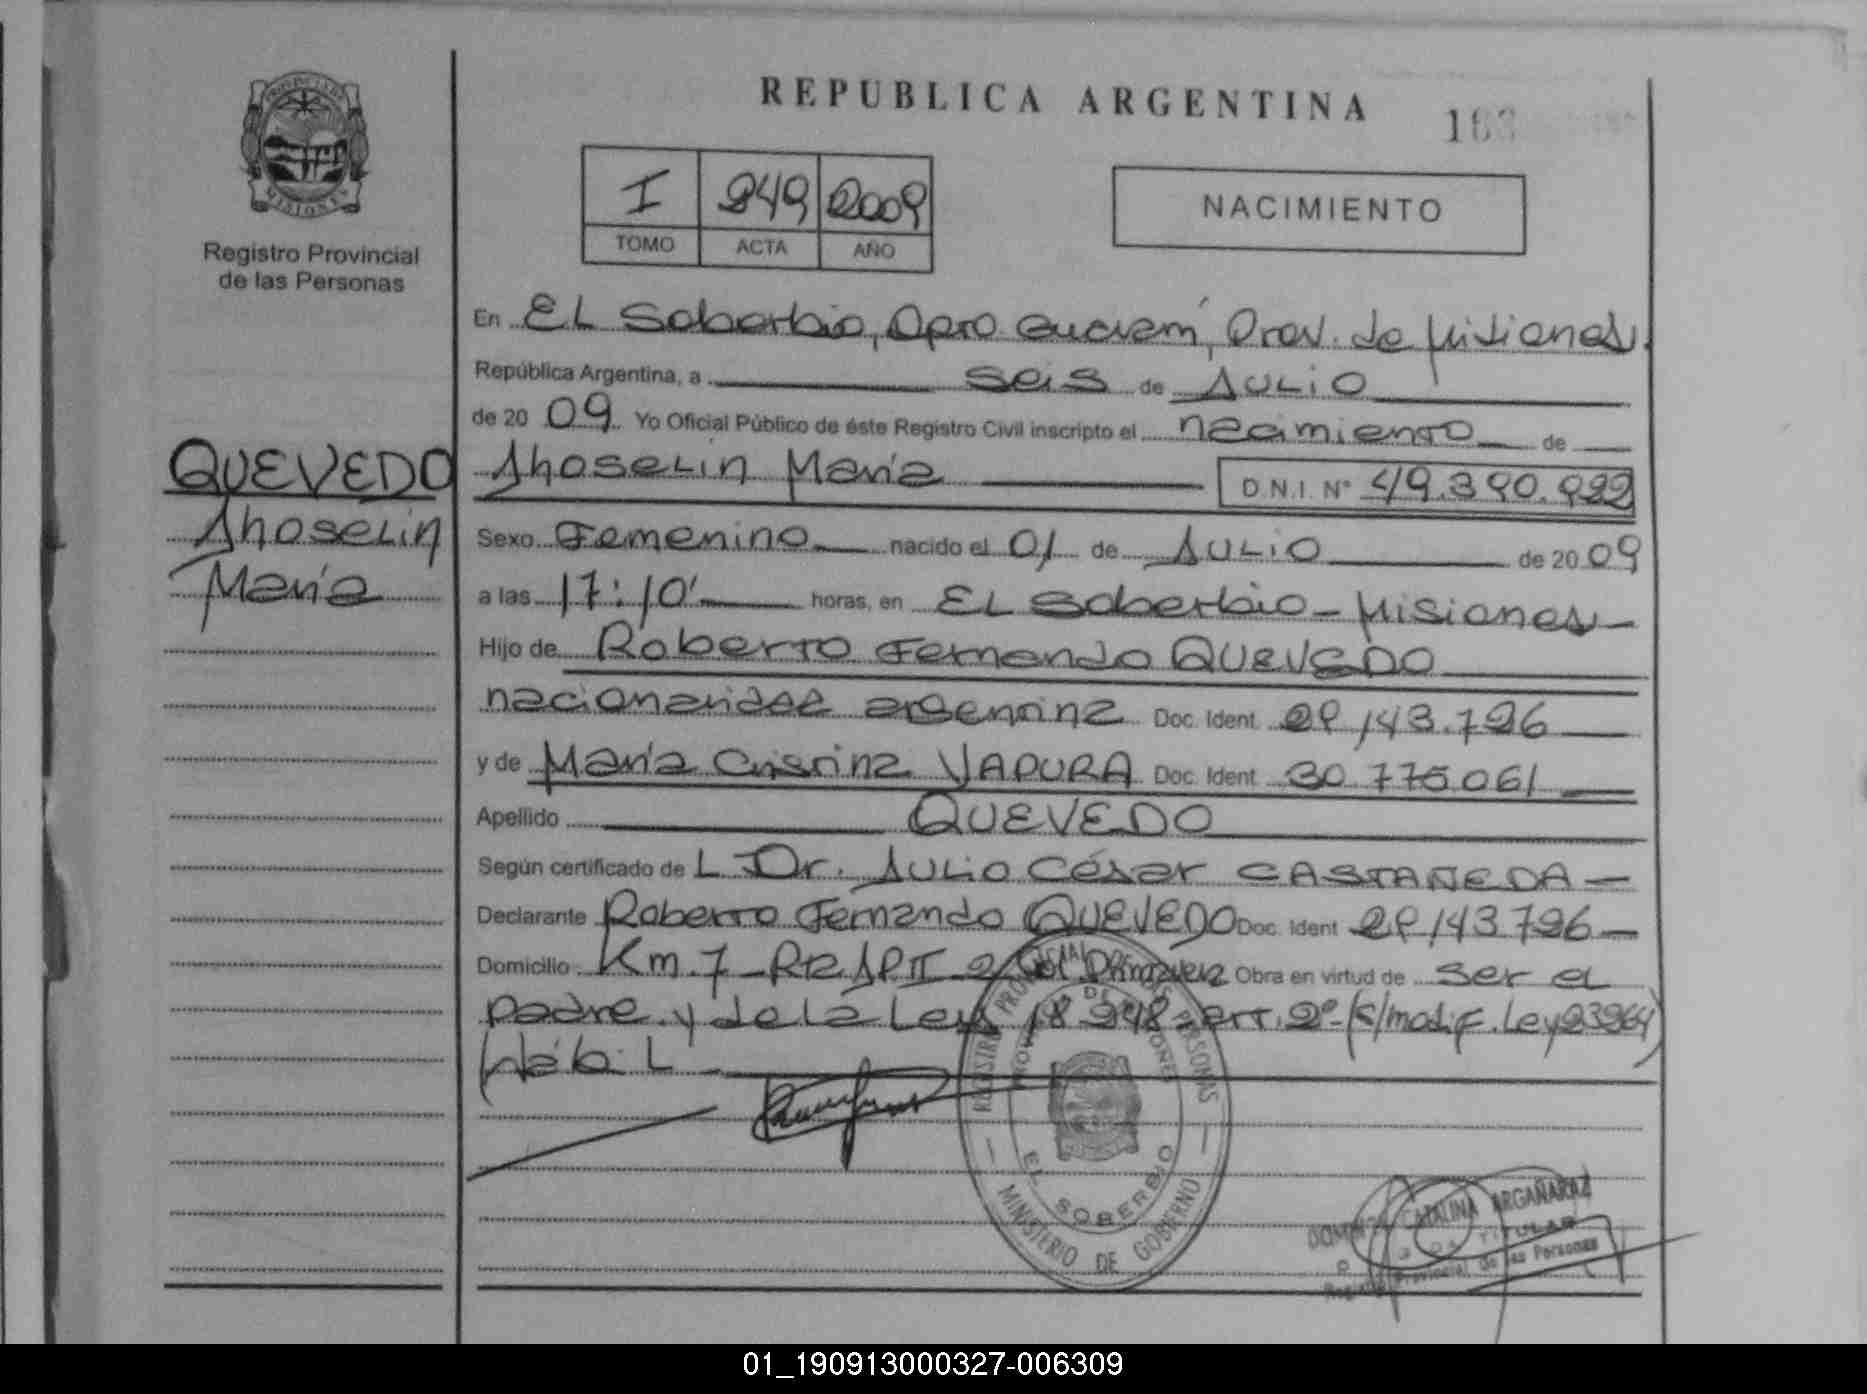 REPUBLICA ARGENTINA
PROVINCIA DE
MISIONES
Registro Provincial
de las Personas
I 249 2009
TOMO ACTA AÑO
NACIMIENTO
En EL Soberbio, Dpto Guaraní, Prov. de Misiones.
República Argentina, a seis de JULIO
de 20 09 Yo Oficial Público de éste Registro Civil inscripto el nacimiento de
QUEVEDO
Jhoselin
María
Jhoselin María D.N.I. Nº 49.390.922
Sexo Femenino nacido el 01 de JULIO de 20 09
a las 17:10' horas, en EL Soberbio - Misiones -
Hijo de Roberto Fernando QUEVEDO
nacionalidad argentina Doc. Ident. 29.143.726
y de María Cristina YAPURA Doc. Ident. 30.775.061
Apellido QUEVEDO
Según certificado de L Dr. JULIO César CASTAÑEDA -
Declarante Roberto Fernando QUEVEDO Doc. Ident. 29.143.726 -
Domicilio Km. 7 - Col Primavera Obra en virtud de ser el
padre y de la Ley 18.248 art. 2º - (S/modif. Ley 23264)
Hábil
REGISTRO PROVINCIAL DE LAS PERSONAS
PROV. DE MISIONES
EL SOBERBIO
MINISTERIO DE GOBIERNO
CATALINA ARGAÑARAZ
TITULAR
Registro Provincial de las Personas
01_190913000327-006309